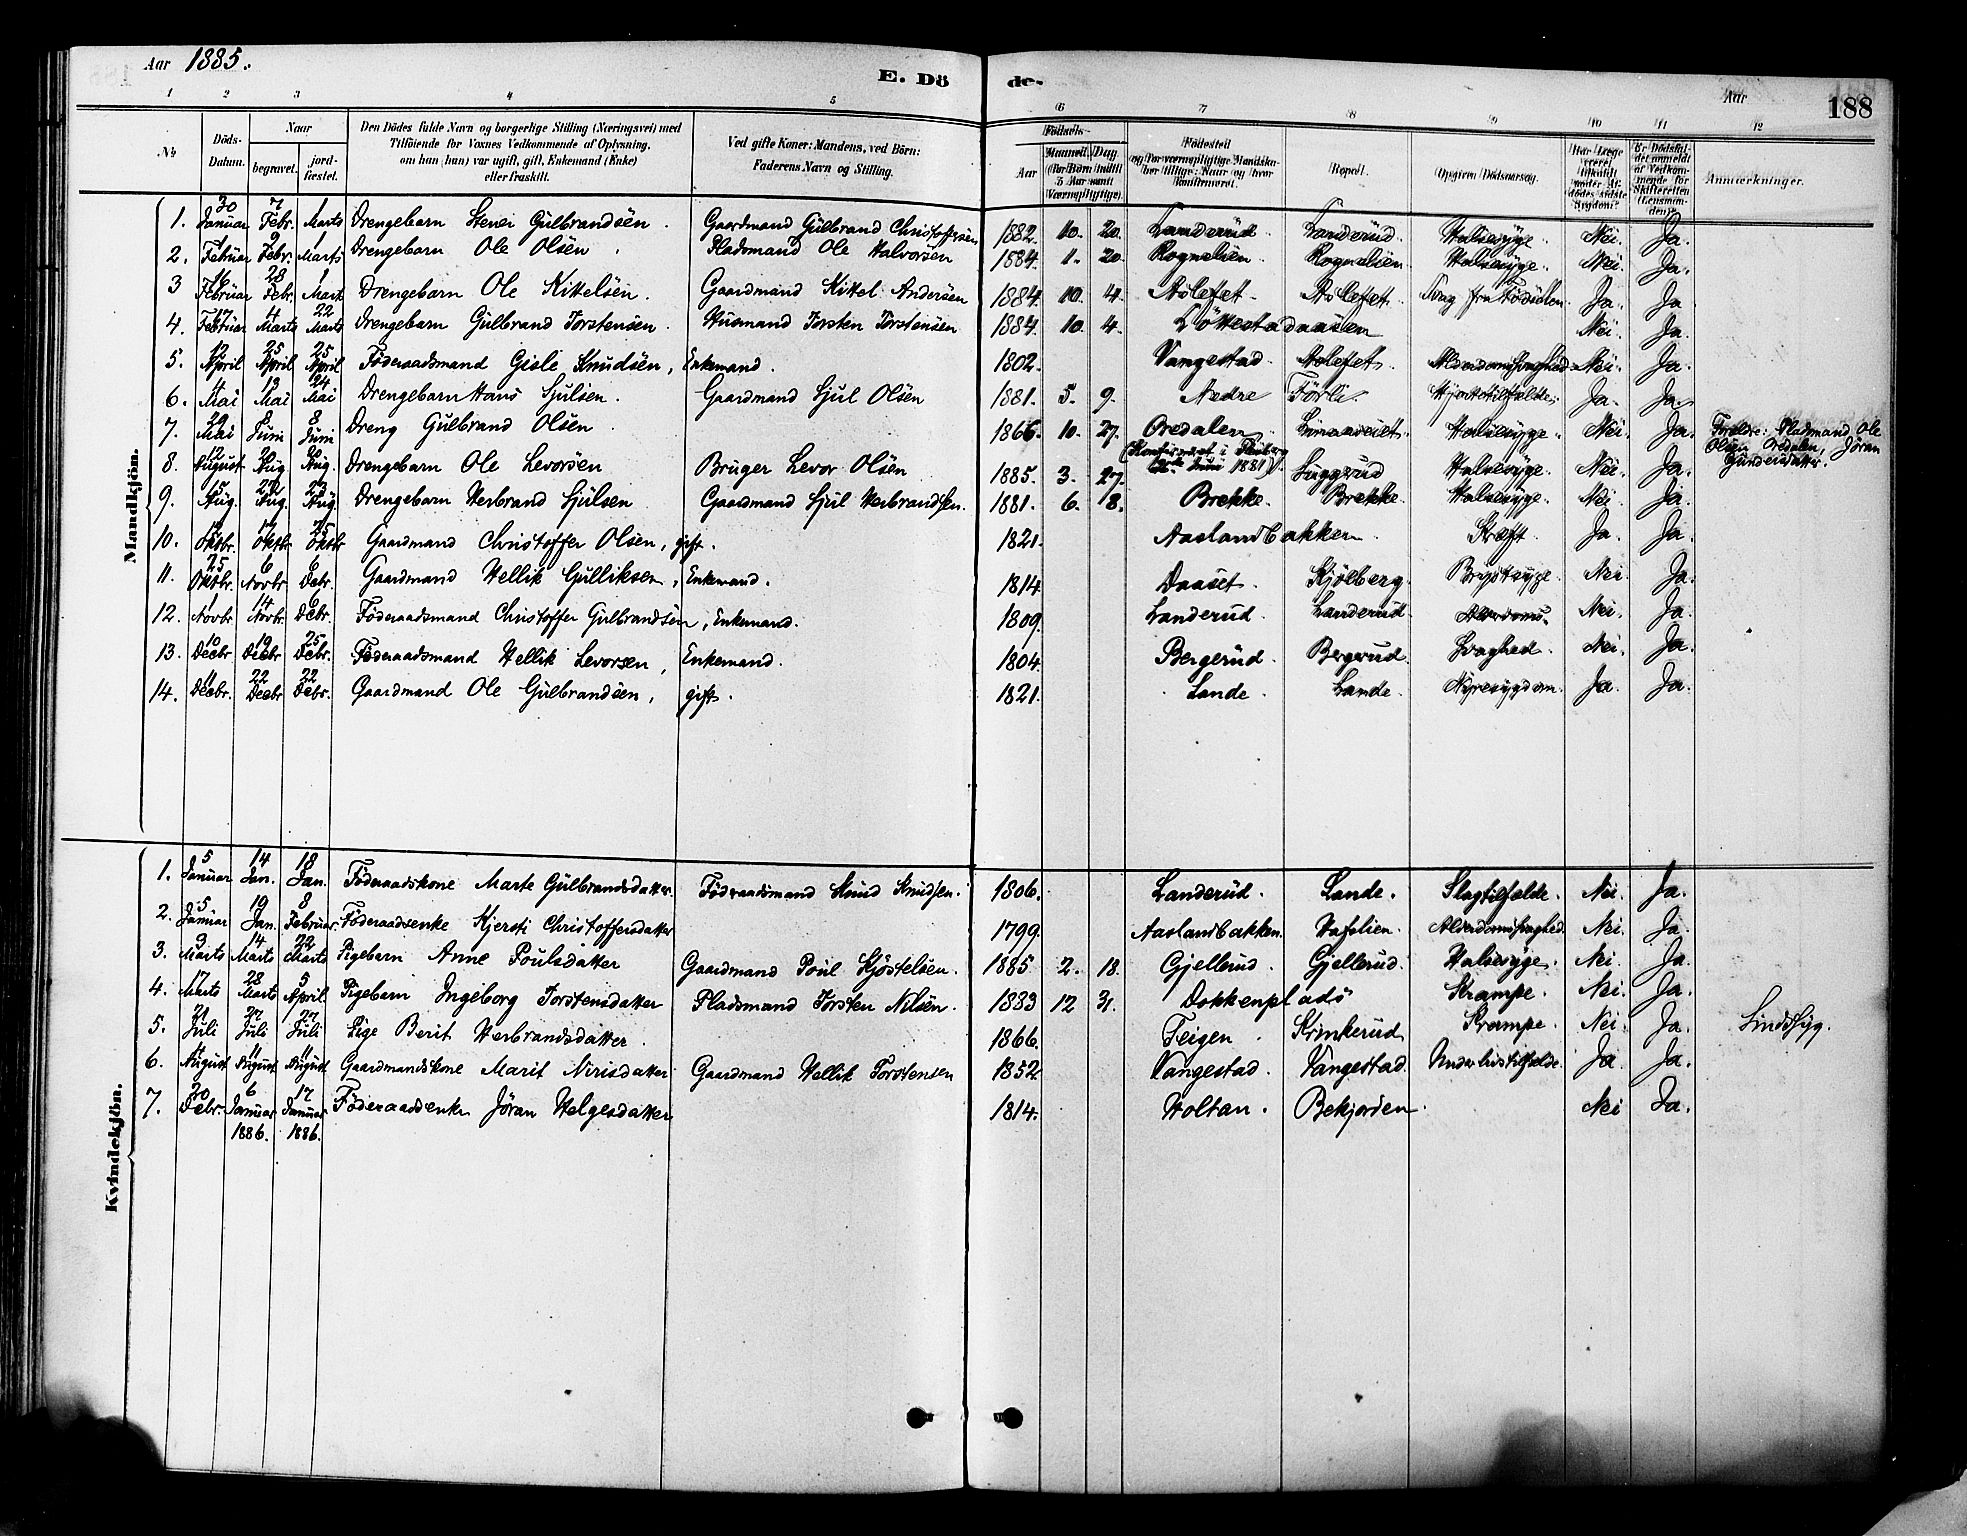 Aar 1885.
E. Dö de-
Aar 188
1 2 3 4 5 6 7 8 9 10 11 12
No Döds-Datum. Naar begravet. jord-fæstet. Den Dödes fulde Navn og borgerlige Stilling (Næringsvei) med Tilföiende for Voxnes Vedkommende af Oplysning, om han (hun) var ugift, gift, Enkemand (Enke) eller fraskilt. Ved gifte Koner: Mandens, ved Börn: Faderens Navn og Stilling. Födsels- Aar Maaned. Dag (for Börn indtil 5 Aar samt Værnepligtige) Födested og for værnepligtige Mandskaber tillige: Naar og hvor konfirmeret. Bopæl. Opgiven Dödsaarsag. Har Læge været tilkaldt under Afdödes sidste Sygdom? Er Dödsfaldet anmeldt af Vedkommende for Skifteretten (Lensmanden)? Anmærkninger.
Mandkjön.
1. 30 Januar 7 Febr. 1 Marts Drengebarn Stenei Gulbrandsen. Gaardmand Gulbrand Christoffersen 1882. 10. 20. Landerud Landerud. Halssyge. Nei. Ja.
2. Februar 9 Febr. 1 Marts Drengebarn Ole Olsen. Pladsmand Ole Halvorsen 1884. 1. 20. Rognelien. Rognelien. Halssyge. Nei. Ja.
3 16 Februar 28 Febr. 1 Marts Drengebarn Ole Kittelsen. Gaardmand Kittel Andersen 1884. 10. 4. Aslefet. Aslefet. Svag fra Födselen. Ja. Ja
4. 17 Februar 4 Marts 22 Marts Drengebarn Gulbrand Torstensen. Husmand Torsten Torstensen 1884. 10. 4. Nei. Ja.
5. 12 April 25 April 25 April Föderaadsmand Gisle Knudsen, Enkemand. 1802. Vangestad. Aslefet. Alderdomssvaghed. Nei. Ja.
6. 4 Mai 13 Mai 24 Mai Drengebarn Hans Sjulsen. Gaardmand Sjul Olsen 1881. 5. 9. Nedre Förli. Hjertetilfælde. Ja. Ja.
7. 29 Mai 8 Juni 8 Juni Dreng Gulbrand Olsen. 1866. 10. 27. Oredalen (Konfirmeret i Flesberg Juni 1881). Halssyge. Nei. Ja. Forældre: Pladsmand Ole Olsen Oredalen, Jöran Gundersdatter.
8. 12 August 20 Aug. 20 Aug. Drengebarn Ole Levorsen Bruger Levor Olsen 1885. 3. 27. Luggrud Halssyge. Nei. Ja.
9. 15 Aug. Aug. 23 Aug. Drengebarn Herbrand Sjulsen Gaardmand Sjul Herbrandsen. 1881. 6. 8. Brekke. Brekke. Halssyge. Nei. Ja.
10. Oktbr. 17 Oktbr. 25 Oktbr Gaardmand Christoffer Olsen, gift. 1821. Aaslandbakken. Kræft. Ja. Ja.
11. 25 Oktbr. 6 Novbr. 6 Debr. Gaardmand Hellik Gulliksen, Enkemand. 1814. Daaset. Kjölberg. Brystsyge. Nei. Ja.
12. 1 Novbr. 14 Novbr. 6 Debr. Föderaadsmand Christoffer Gulbrandsen, Enkemand. 1809. Landerud. Landerud. Alderdoms- Nei. Ja.
13. 10 Decbr. 19 Decbr. 25 Debr. Föderaadsmand Hellik Levorsen, Enkemand. 1804. Bergerud. Bergerud. svaghed. Nei. Ja.
14. 11 Decbr. 22 Decbr. 22 Debr. Gaardmand Ole Gulbrandsen, gift. 1821. Lande. Lande. Nyresygdom. Ja. Ja.
Kvindekjön.
1. 5 Januar 14 Jan. 18 Jan. Föderaadskone Marte Gulbrandsdatter. Föderaadsmand Knud Knudsen. 1806. Landerud. Lande. Slagtilfælde. Nei. Ja.
2. 5 Januar 19 Jan. 8 Februar. Föderaadsenke Kjersti Christoffersdatter 1799. Aaslandbakken. Haflien. Alderdomssvaghed. Nei. Ja.
3. 3 Marts 14 Marts 22 Marts Pigebarn Anne Poulsdatter Gaardmand Poul Kjöstelsen. 1885 2. 18. Gjellerud. Gjellerud. Halssyge. Nei. Ja.
4. 17 Marts 28 Marts 5 April. Pigebarn Ingeborg Torstensdatter Pladsmand Torsten Nilsen. 1883 12 31. Dokkenplads Krampe. Nei. Ja.
5. 21 Juli 27 Juli 27 Juli Pige Berit Herbrandsdatter. 1866. Teigen. Krampe. Nei. Ja. Sindssyg.
6. 4 August 11 August 11 August Gaardmandskone Marit Nirisdatter. Gaardmand Hellik Torstensen 1852 Vangestad. Vangestad. Underlivstilfælde. Ja Ja.
7. 30 Debr. 6 Januar 1886. 17 Januar 1886. Föderaadsenke Jöran Helgesdatter 1814. Holtan. Bekjorden. Nei Ja.